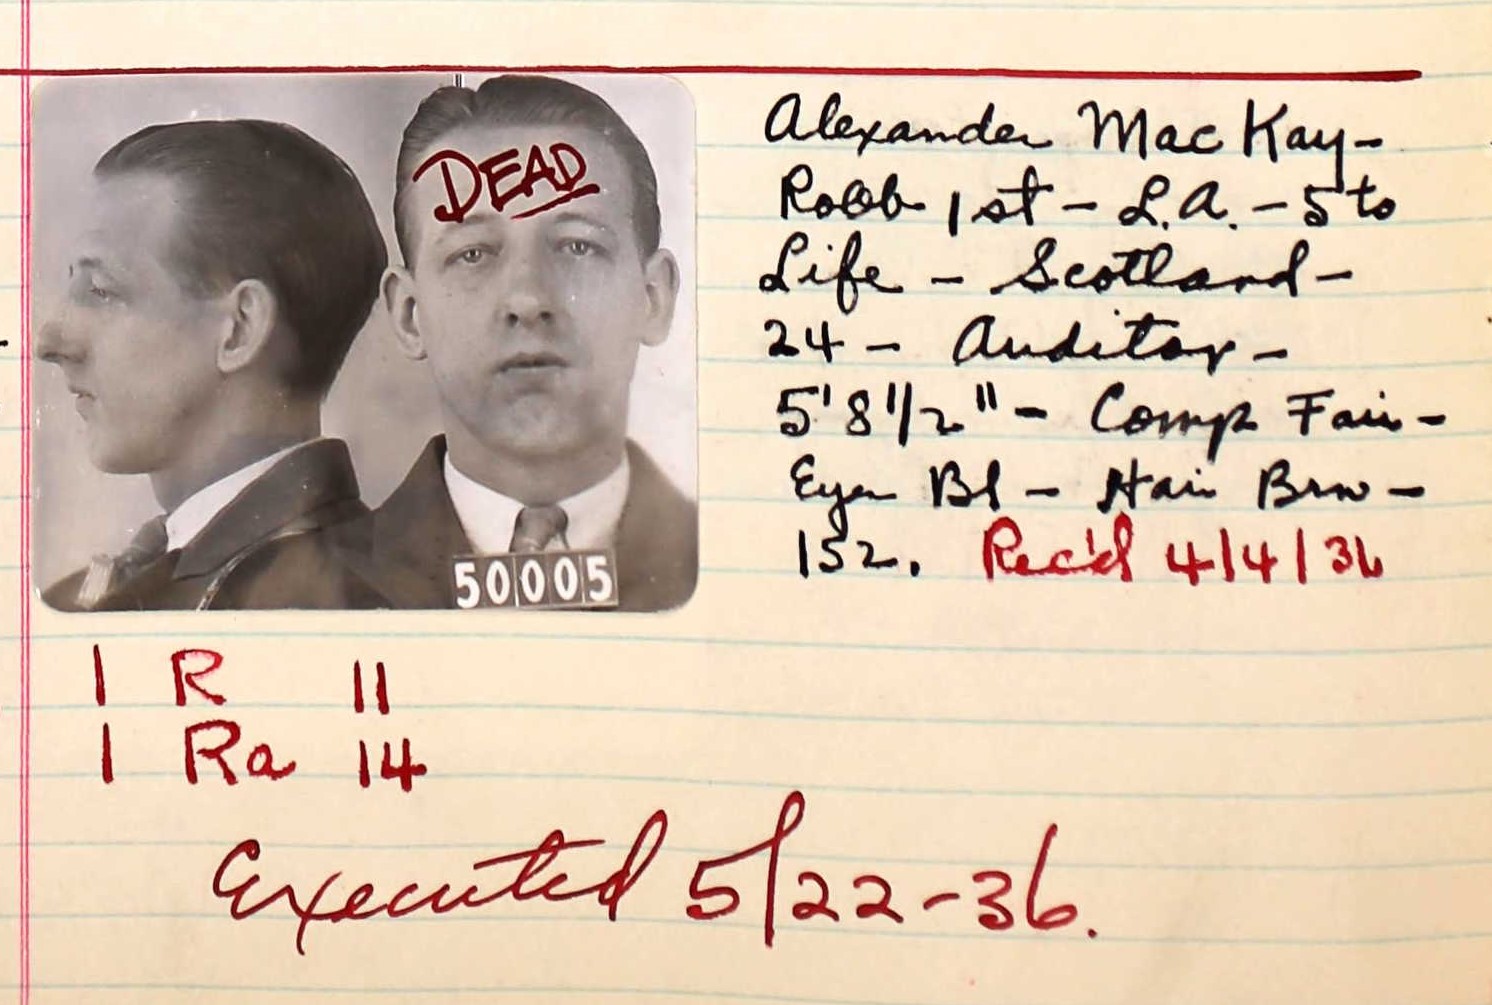 DEAD
50005
Alexander MacKay-
Robb 1st - L.A. - 5 to
Life - Scotland -
24 - Auditor -
5'8 1/2" - Comp Fair -
Eyes Bl - Hair Brn -
152. Rec'd 4/4/36
1 R 11
1 Ra 14
Executed 5/22-36.